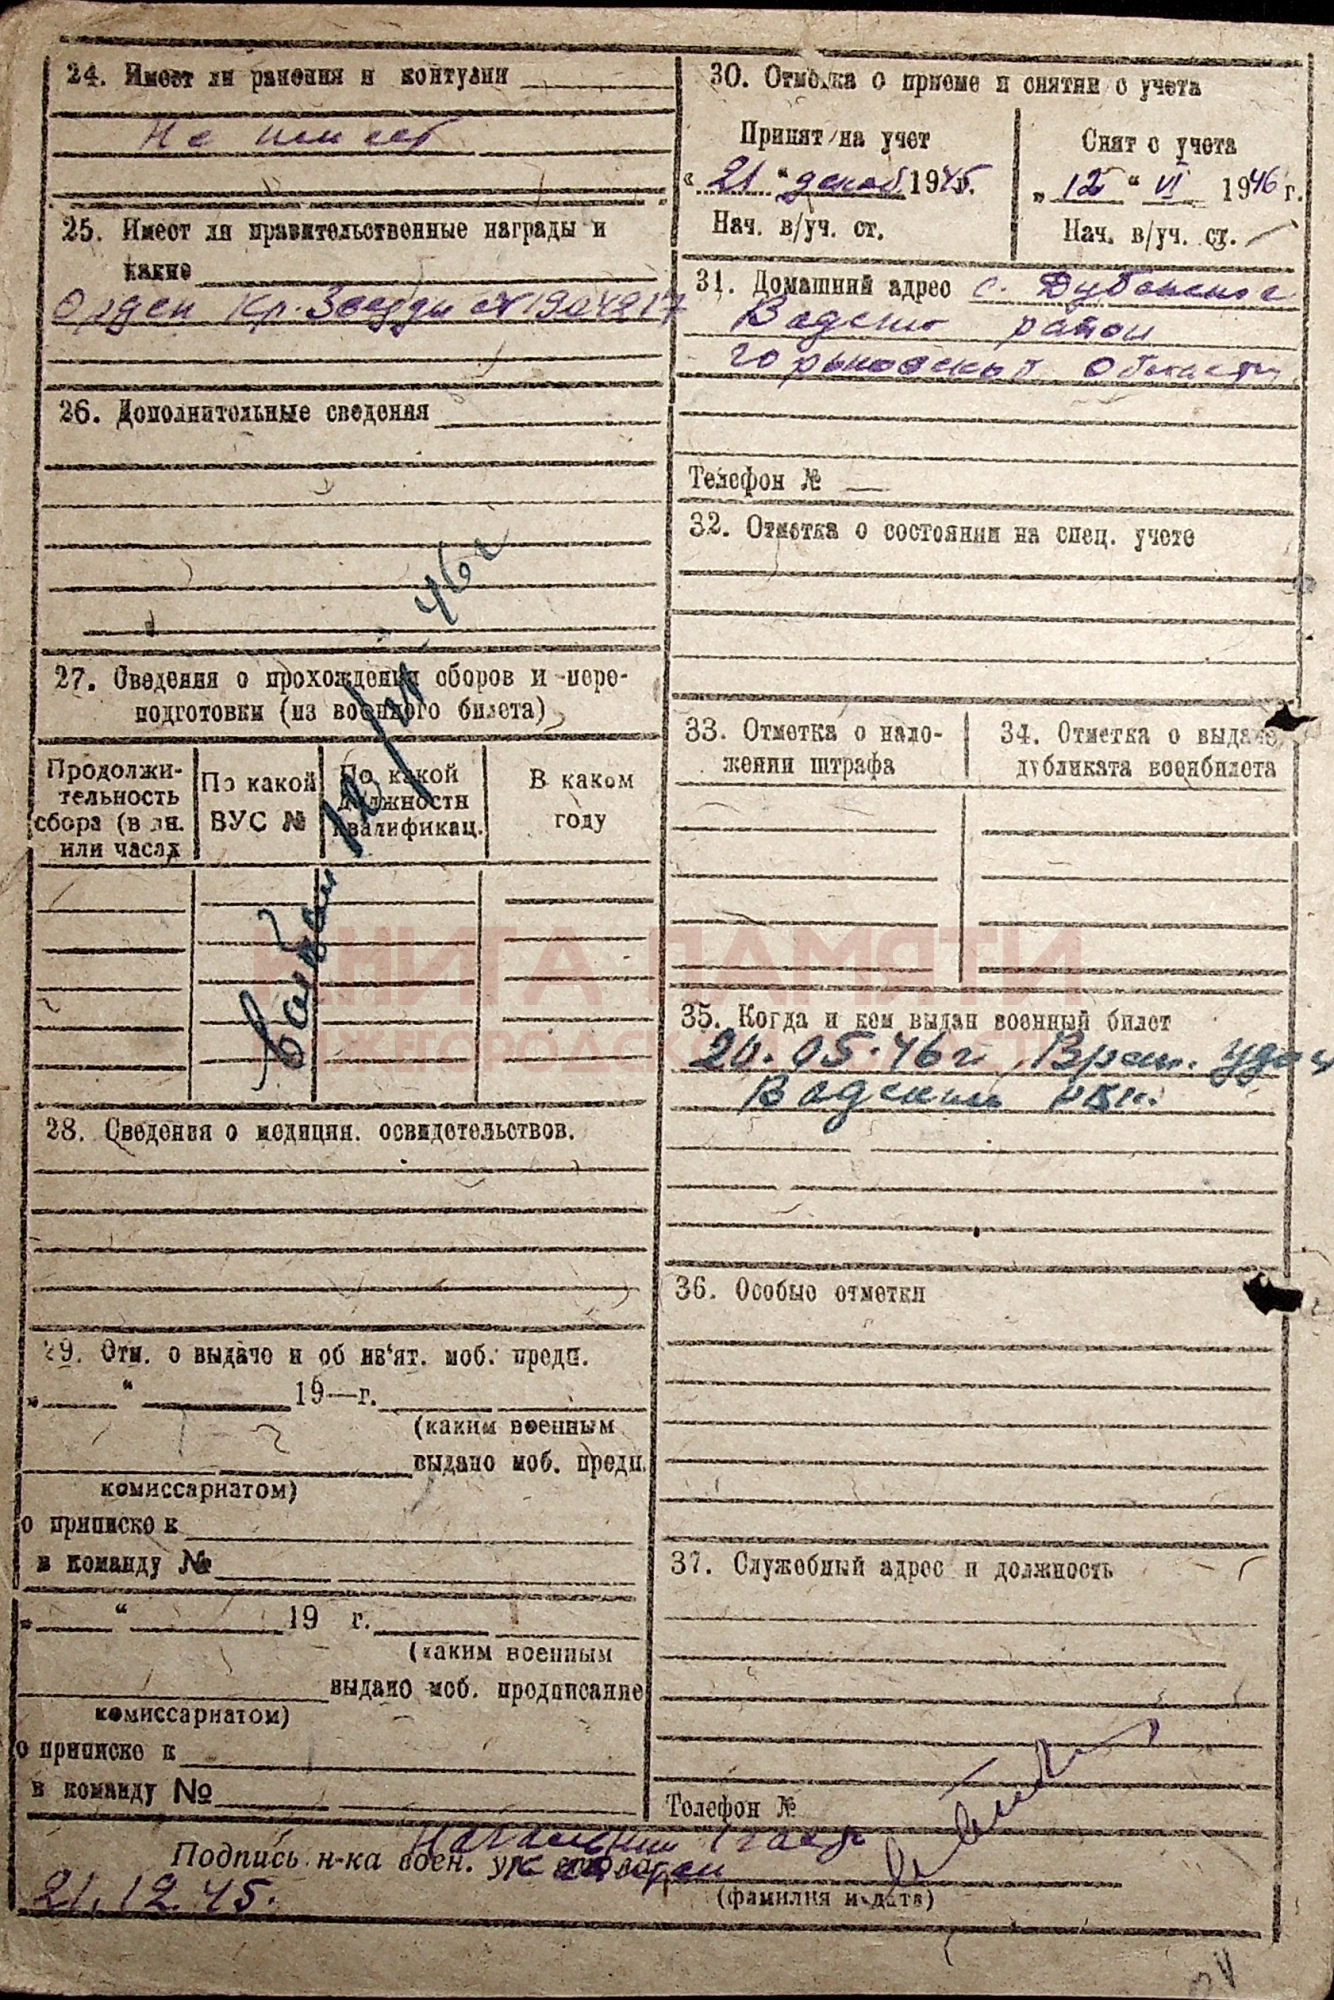 24. Имеет ли ранения и контузии
Не имеет
25. Имеет ли правительственные награды и
какие
Орден Кр. Звезды № 1904217
26. Дополнительные сведения
27. Сведения о прохождении сборов и пере-
подготовки (из военного билета)
Продолжи-
тельность
сбора (в дн.
или часах
По какой
ВУС №
По какой
должности
квалификац.
В каком
году
12/VI 46г
28. Сведения о медицин. освидетельствов.
29. Отм. о выдаче и об из‘ят. моб. предп.
„ “ 19—г.
(каким военным
выдано моб. предп.
комиссариатом)
о приписке к
в команду №
„ “ 19 г.
(каким военным
выдано моб. предписание
комиссариатом)
о приписке к
в команду №
30. Отметка о приеме и снятии с учета
Принят на учет
« 21 “ декаб. 1945г.
Нач. в/уч. ст.
Снят с учета
„ 12 “ VI 1946 г.
Нач. в/уч. ст.
31. Домашний адрес с. Дубенское
Вадского район
Горьковской области
Телефон №
32. Отметка о состоянии на спец. учете
33. Отметка о нало-
жении штрафа
34. Отметка о выдаче
дубликата военбилета
КНИГА ПАМЯТИ
НИЖЕГОРОДСКОЙ ОБЛАСТИ
35. Когда и кем выдан военный билет
20.05.46г Врем. удос
Вадским РВК.
36. Особые отметки
37. Служебный адрес и должность
Телефон №
Подпись н-ка воен. уч. стола
(фамилия и дата)
21.12.45.